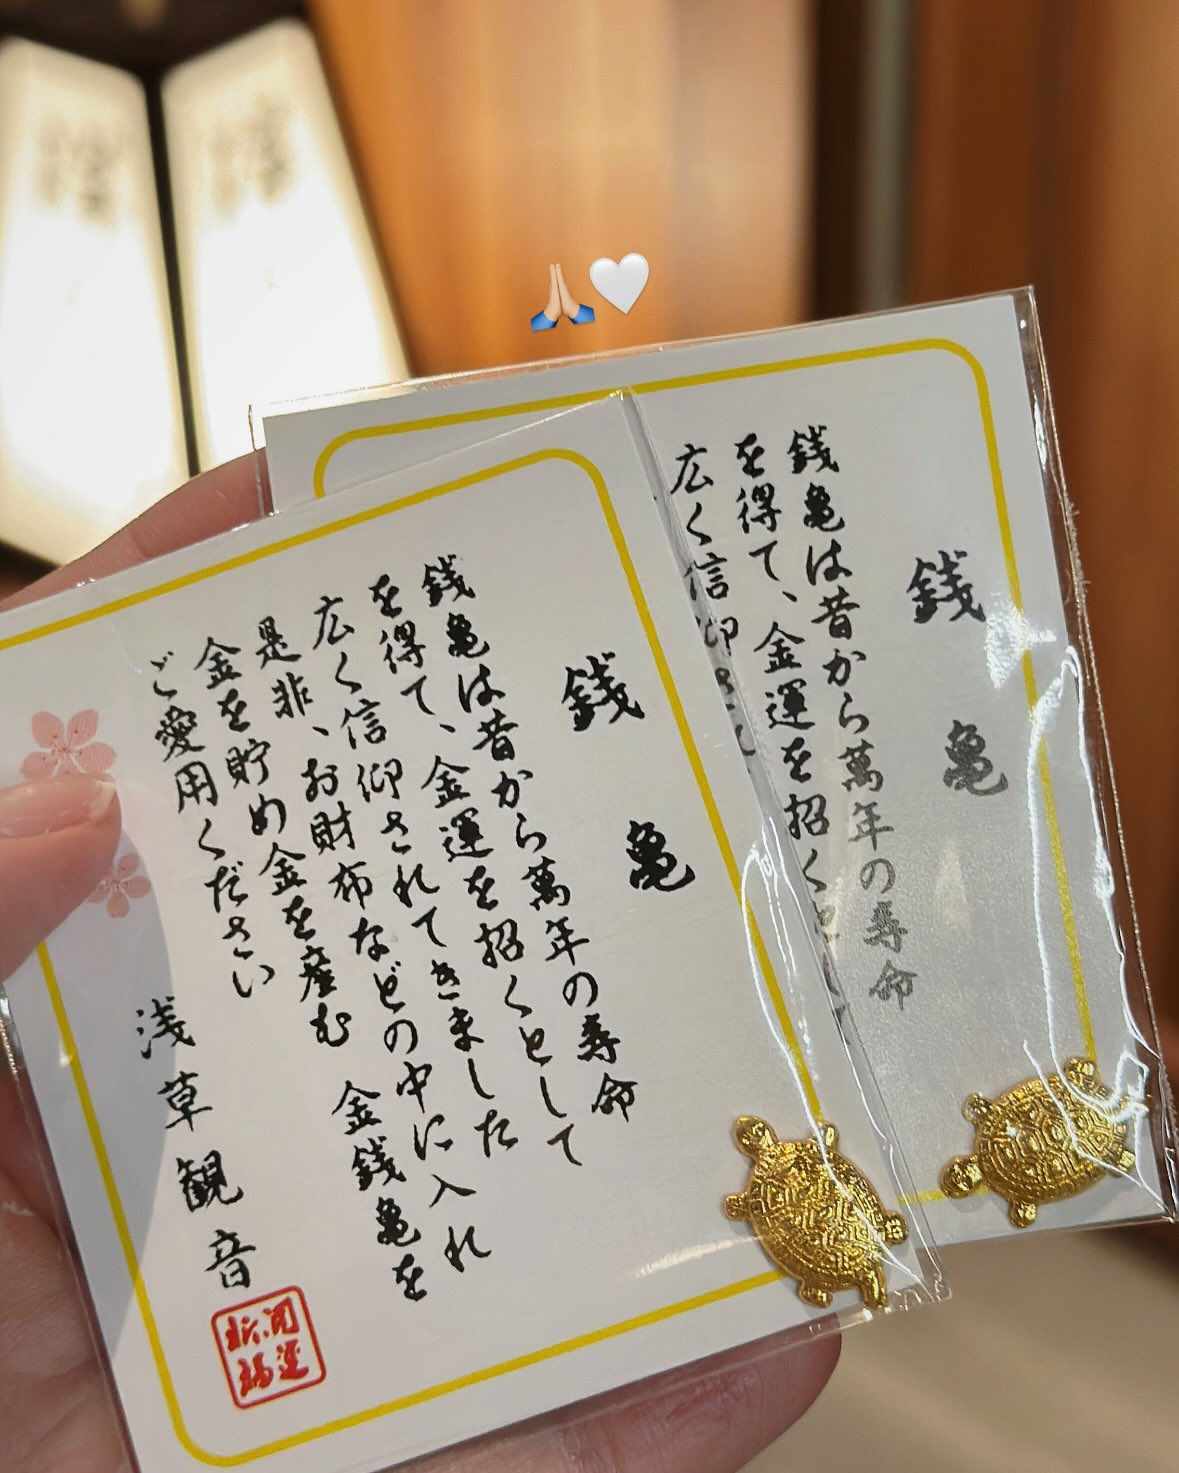 銭亀
銭亀は昔から萬年の寿命
を得て、金運を招くとして
広く信仰されてきました
是非、お財布などの中に入れ
金を貯め金を産む 金銭亀を
ご愛用ください
浅草観音
開運
祈福
銭亀
銭亀は昔から萬年の寿命
を得て、金運を招くとして
広く信仰され